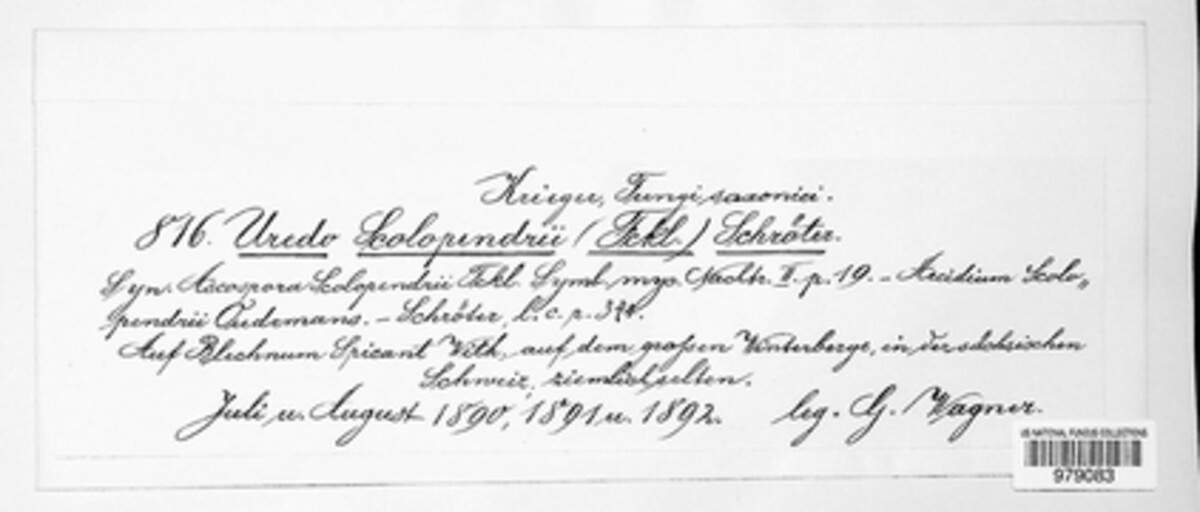 Krieger, Fungi saxonici.
816. Uredo Scolopendrii (Fckl.) Schröter.
Syn. Ascospora Scolopendrii Fckl. Symb. myc. Nachtr. II. p. 19. – Aecidium Scolo„
pendrii Oudemans. – Schröter, l. c. p. 374.
Auf Blechnum Spicant With., auf dem großen Winterberge, in der sächsischen
Schweiz, ziemlich selten.
Juli u. August 1890, 1891 u. 1892. leg. G. Wagner.
US NATIONAL FUNGUS COLLECTIONS
979083